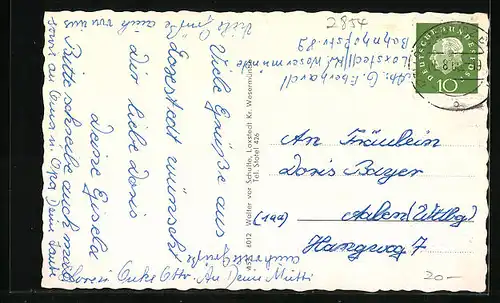 2854
Eberhard
Loxstedt/Kr. Wesermünde
Bahnhofstr. 89
DEUTSCHE BUNDESPOST
10
An Fräulein
Doris Bayer
(14a) Aalen (Wttbg)
Hangweg 7
20.-
Walter von Schulte, Loxstedt Kr. Wesermünde
Tel. Stotel 426
Viele Grüße aus
Loxstedt wünscht
Dir liebe Doris
Deine Gisela
Bitte schreibe auch mal
Viele Grüße auch von uns
auch von
Onkel Otto. An Deine Mutti
sowie an Oma u. Opa Deine Tante